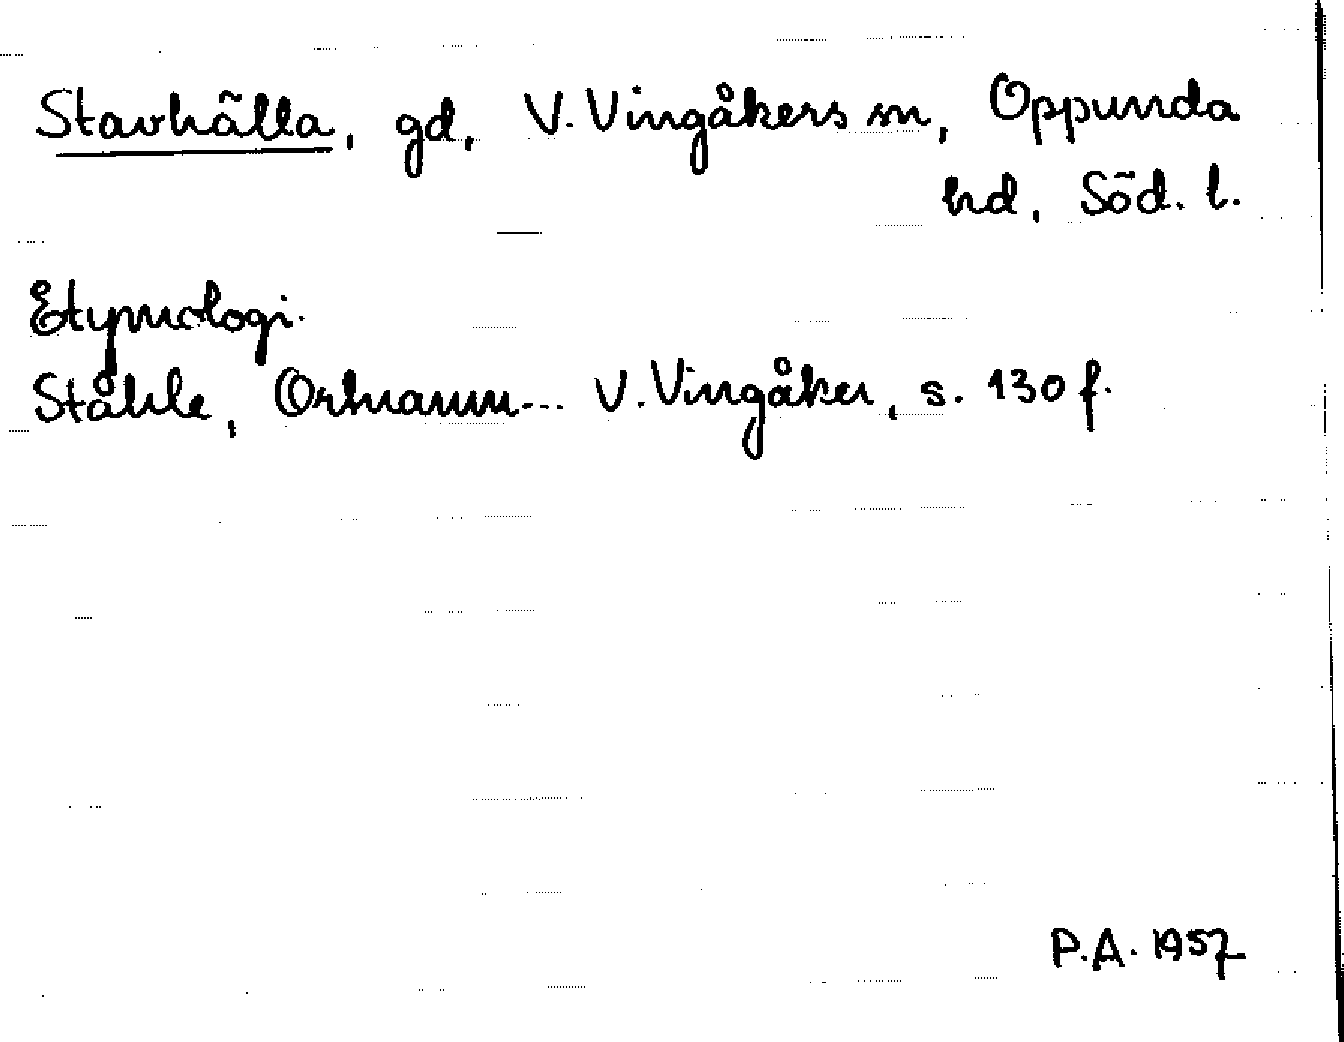 Stavhälla, gd, V. Vingåkers sn, Oppunda
hd, Söd. l.
Etymologi.
Ståhle, Ortnamn... V. Vingåker, s. 130 f.
P.A. 1957